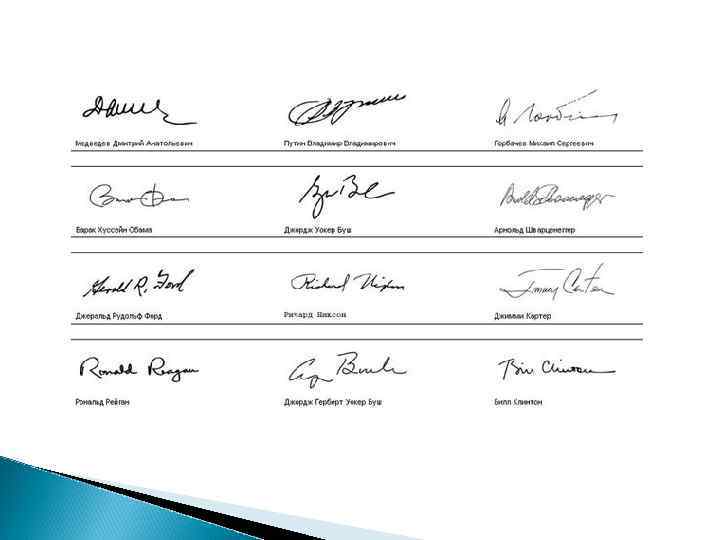 Медведев Дмитрий Анатольевич
Путин Владимир Владимирович
Горбачев Михаил Сергеевич
Барак Хуссейн Обама
Джордж Уокер Буш
Арнольд Шварценеггер
Gerald R. Ford
Richard Nixon
Jimmy Carter
Джеральд Рудольф Форд
Ричард Никсон
Джимми Картер
Ronald Reagan
Bill Clinton
Рональд Рейган
Джордж Герберт Уокер Буш
Билл Клинтон